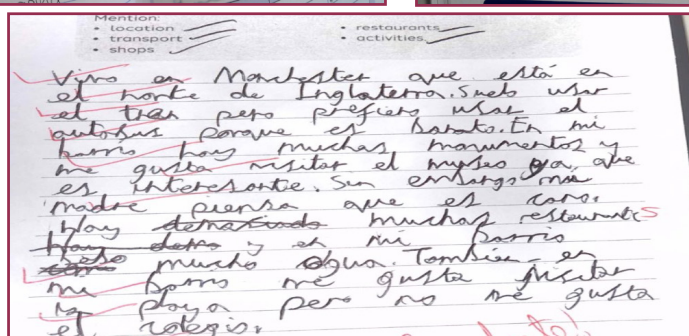 Mention:
• location
• transport
• shops
• restaurants
• activities
Vivo en Manchester que está en
el norte de Inglaterra. Suelo usar
el tren pero prefiero usar el
autobus porque es barato. En mi
barrio hay muchas monumentos y
me gusta visitar el museo ya que
es interesante. Sin embargo mi
madre piensa que es caro.
Hay demasiado muchas restaurantes
Hay y en mi barrio
bebo mucho agua. Tambien en
mi barrio me gusta visitar
la playa pero no me gusta
el colegio.